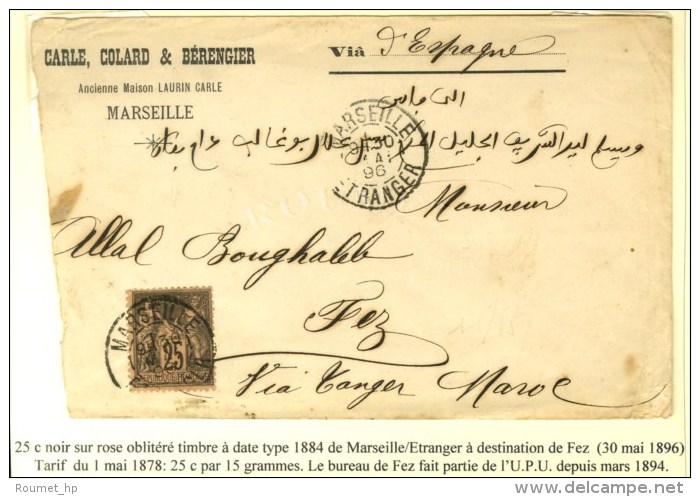 CARLE, COLARD & BÉRENGIER
Ancienne Maison LAURIN CARLE
MARSEILLE
Viâ d'Espagne
الى فاس
MARSEILLE
30
MAI
96
ETRANGER
Monsieur
Allal Boughaleb
Fez
Via Tanger Maroc
MARSEILLE
25
25 c noir sur rose oblitéré timbre à date type 1884 de Marseille/Etranger à destination de Fez (30 mai 1896)
Tarif du 1 mai 1878: 25 c par 15 grammes. Le bureau de Fez fait partie de l'U.P.U. depuis mars 1894.
© Roumet_hp
delcampe.net